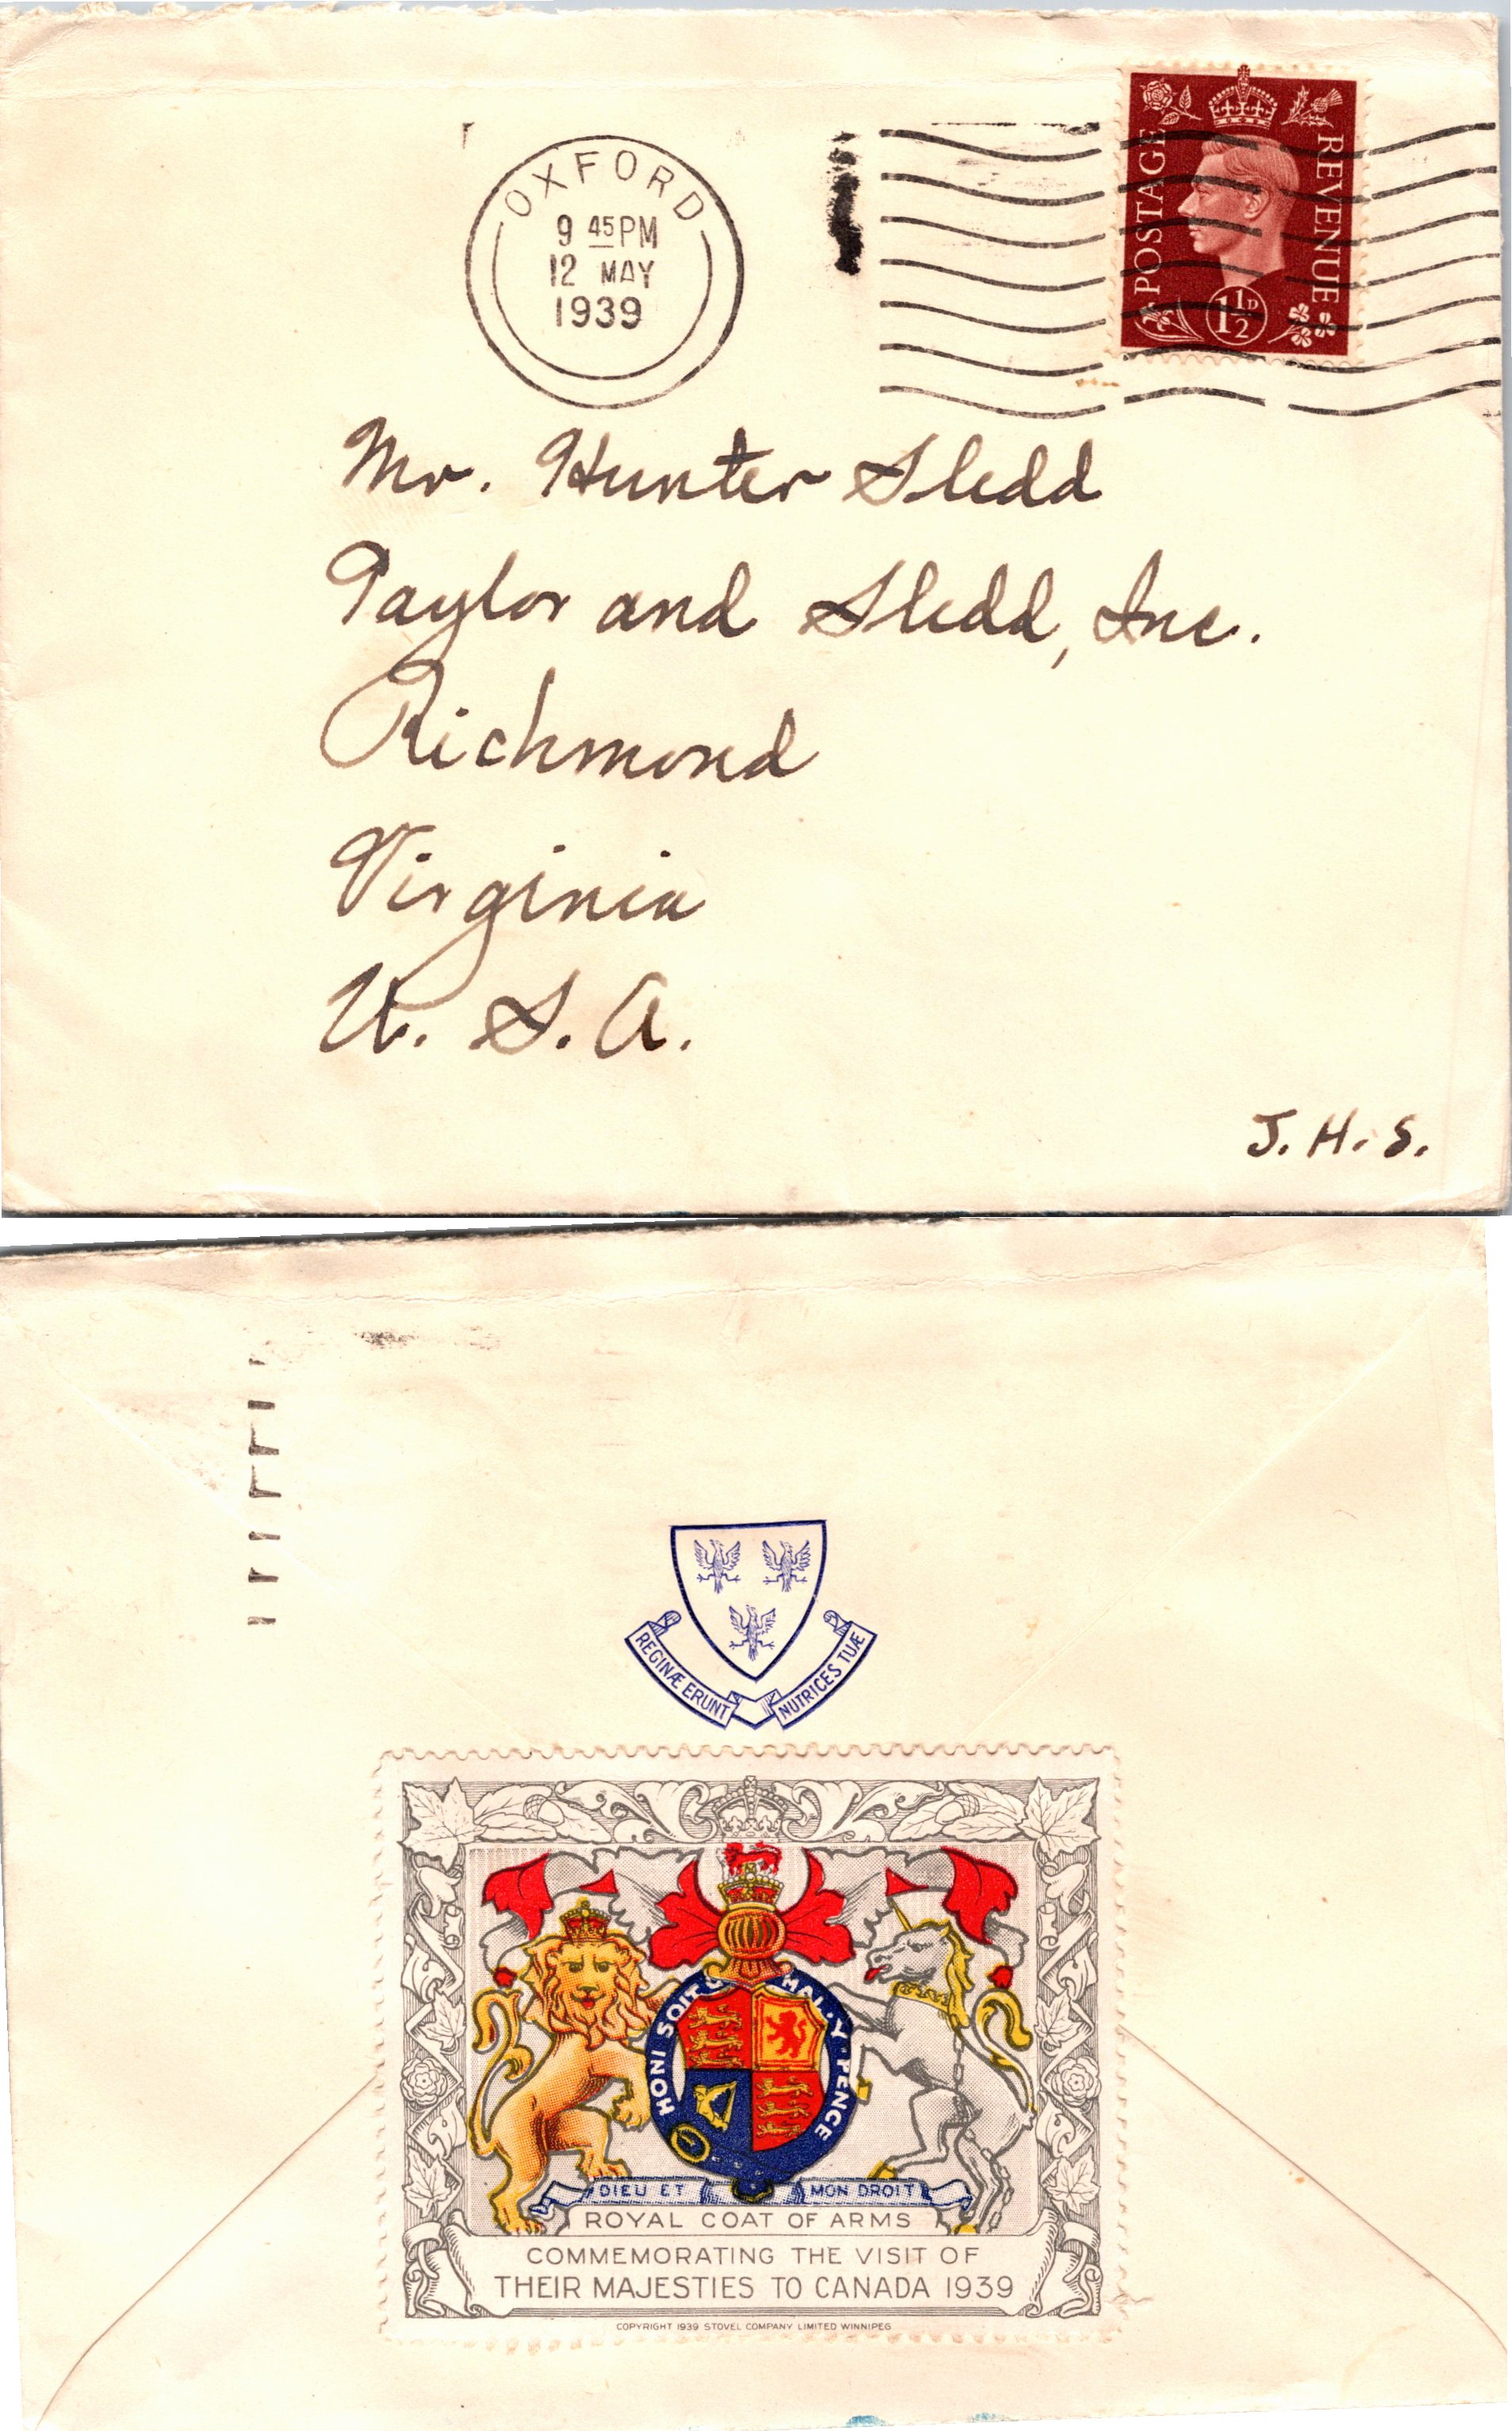 OXFORD
9 45 PM
12 MAY
1939
POSTAGE
REVENUE
1½D
Mr. Hunter Sledd
Taylor and Sledd, Inc.
Richmond
Virginia
U. S. A.
J. H. S.
REGINÆ ERUNT NUTRICES TUÆ
HONI SOIT Q MAL·Y·PENCE
DIEU ET MON DROIT
ROYAL COAT OF ARMS
COMMEMORATING THE VISIT OF
THEIR MAJESTIES TO CANADA 1939
COPYRIGHT 1939 STOVEL COMPANY LIMITED WINNIPEG